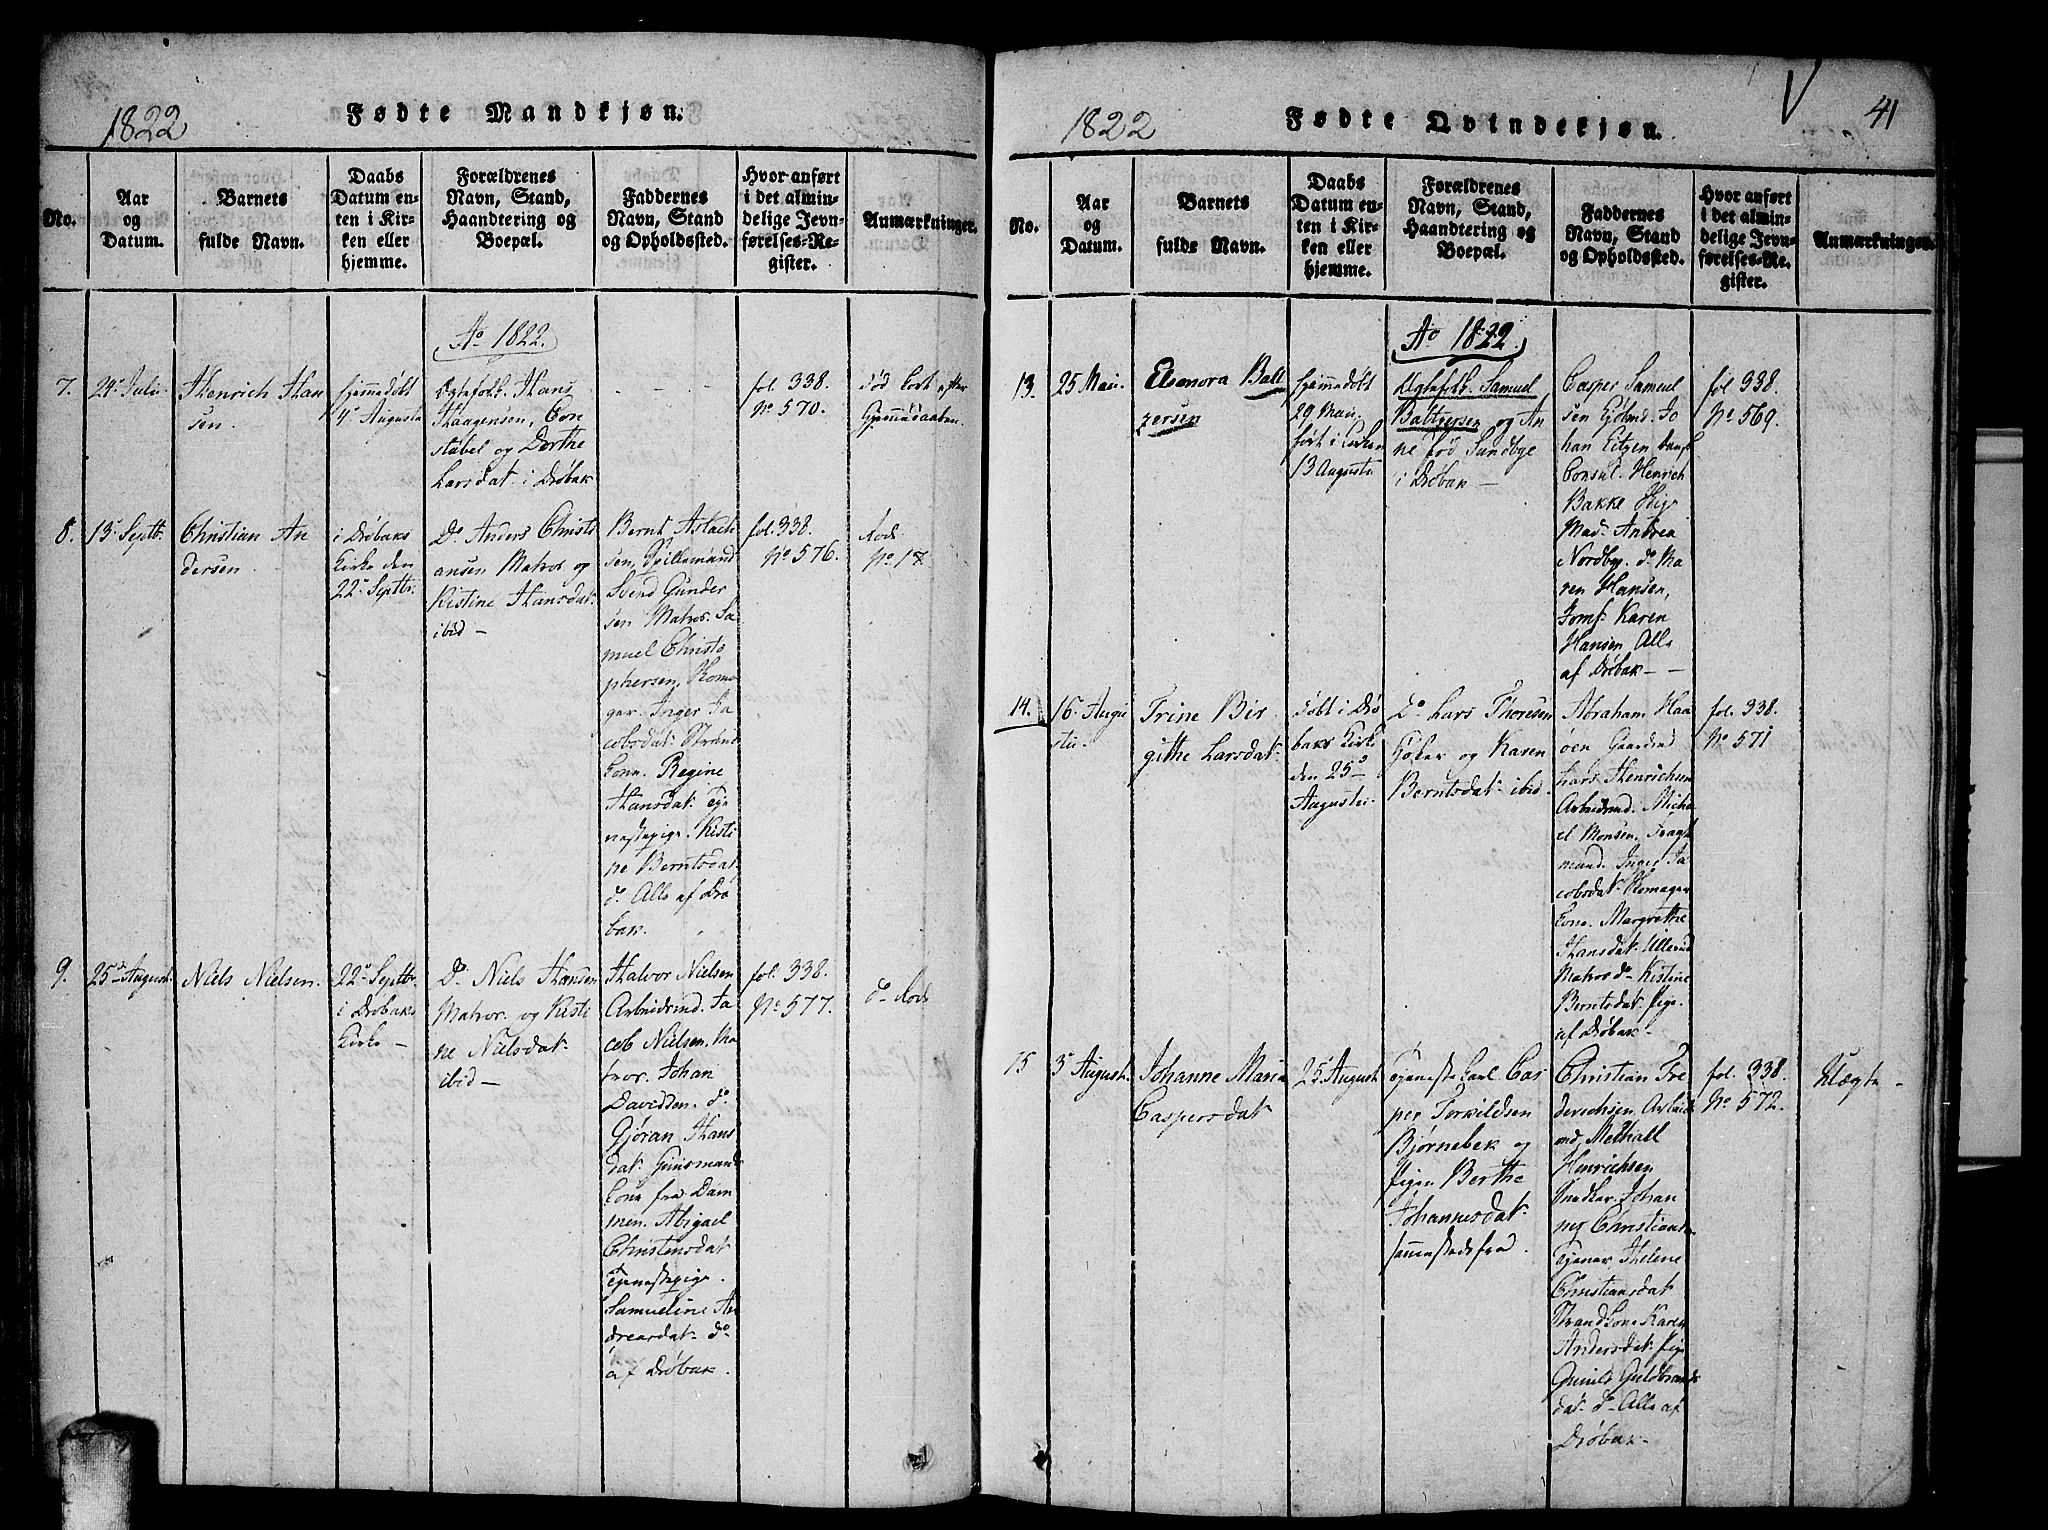 1822
Fødte Mandkjøn.
No.
Aar
og
Datum.
Barnets
fulde Navn.
Daabs
Datum en-
ten i Kir-
ken eller
hjemme.
Forældrenes
Navn, Stand,
Haandtering og
Boepæl.
Faddernes
Navn, Stand
og Opholdssted.
Hvor anført
i det almin-
delige Jevn-
førelses-Re-
gister.
Anmærkninger.
Ao 1822.
7.
29 Julii
Henrich Han
sen.
hjemmedøbt
4 Augusti
Ægtefolk. Hans
Haagensen, Con
stabel og Dorthe
Larsdat. i Drøbak
fol. 338.
No 570.
død bort efter
Hjemmedaaben.
8.
13 Septb.
Christian An
dersen
i Drøbaks
Kirke den
22 Septbr.
Do Anders Christi
ansen Matros og
Kistine Hansdat.
ibid -
Bernt Aslach
sen,
Svend Gunder
sen Matros. Sa
muel Christo
phersen,
Inger Ja
cobsdat.
Kone. Regine
Hansdat. Tje
nestepige. Kisti
ne Berntsdat.
do. Alle af Drø
bak.
fol. 338.
No 576.
No 17
9.
25 August
Niels Nielsen.
22 Septbr.
i Drøbaks
Kirke -
Do Niels Hansen
Matros. og Kisti
ne Nielsdat.
ibid -
Halvor Nielsen
Arbeidsmd. Ja
cob Nielsen, Ma
tros. Johan
Davidsen. do
Gjøran Hans
dat.
Kone fra Dam
men. Abigael
Christensdat
Tjenestepige.
Samueline An
dreasdat. do
af Drøbak.
fol. 338.
No 577.
1822
Fødte Qvindekjøn.
41
No.
Aar
og
Datum.
Barnets
fulde Navn.
Daabs
Datum en-
ten i Kir-
ken eller
hjemme.
Forældrenes
Navn, Stand,
Haandtering og
Boepæl.
Faddernes
Navn, Stand
og Opholdssted.
Hvor anført
i det almin-
delige Jevn-
førelses-Re-
gister.
Anmærkninger.
Ao 1822.
13.
25 Maii.
Eleonora Balt
zersen
hjemmedøbt
29 Maii.
ført i Kirken
13 Augusti
Ægtefolk. Samuel
Baltzersen og An
ne fød Sandbye
i Drøbak -
Casper Samuel
sen Jo
han Eitzen
Consul. Henrich
Bakke
Mad. Andrea
Nordby. do Ma
ren Hansen,
Jomf. Karen
Hansen. Alle
af Drøbak -
fol 338.
No 569.
14.
16 Augu
sti.
Trine Bir
githe Larsdat.
døbt i Drø
baks Kirke
den 25
Augusti.
Do Lars Thoresen
og Karen
Berntsdat. ibid.
Abraham Haa
øen
Lars Henrichsen
Arbeidsmd. Micha
el Monsen. Fragt
mand. Inger Ja
cobsdat.
Kone. Margrethe
Hansdat.
Matros do Kistine
Berntsdat. Pige.
af Drøbak -
fol. 338.
No 571
15
3 August.
Johanne Marie
Caspersdat
25 August
Tjenestekarl Cas
per Torkildsen
Bjørnebek og
Pigen Berthe
Johannesdat.
sammestedsfra.
Christian Fre
derichsen, Arbeids
md. Methiall
Henrichsen
Snedker. Johan
nes Christians.
Tjener. Helene
Christiansdat
Karen
Andersdat. Pige
Gunild Guldbrands
dat. do Alle af
Drøbak -
fol. 338.
No 572.
Uægte -